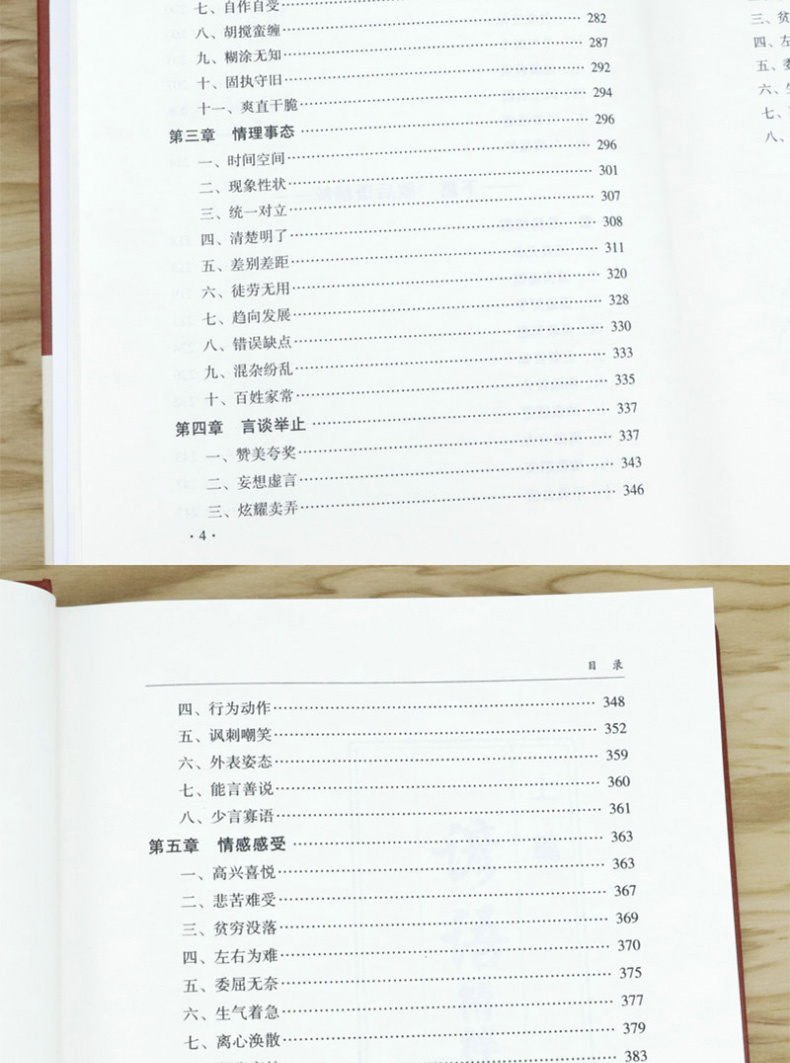 七、自作自受
八、胡搅蛮缠 282
九、糊涂无知 287
十、固执守旧 292
十一、爽直干脆 294
第三章 情理事态 296
一、时间空间 296
二、现象性状 301
三、统一对立 307
四、清楚明了 308
五、差别差距 311
六、徒劳无用 320
七、趋向发展 328
八、错误缺点 330
九、混杂纷乱 333
十、百姓家常 335
第四章 言谈举止 337
一、赞美夸奖 337
二、妄想虚言 343
三、炫耀卖弄 346
·4·
三、贫
四、左
五、委
六、生
七、
八、
目 录
四、行为动作 348
五、讽刺嘲笑 352
六、外表姿态 359
七、能言善说 360
八、少言寡语 361
第五章 情感感受 363
一、高兴喜悦 363
二、悲苦难受 367
三、贫穷没落 369
四、左右为难 370
五、委屈无奈 375
六、生气着急 377
七、离心涣散 379
383